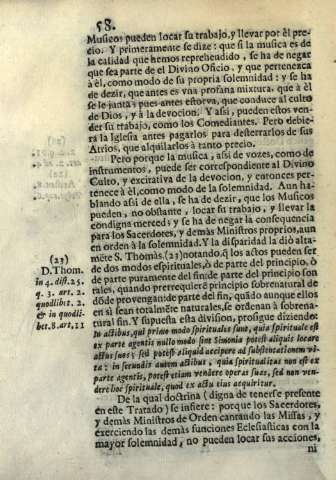 58.
Musicos pueden locar su trabajo, y llevar por èl pre-
cio. Y primeramente se dize: que si la musica es de
la calidad que hemos reprehendido, se ha de negar
que sea parte de el Divino Oficio, y que pertenezca
à èl, como modo de su propria solemnidad: y se ha
de dezir, que antes es vna profana mixtura, que à èl
se le junta; pues antes estorva, que conduce al culto
de Dios, y à la devocion. Y assi, pueden estos ven-
der su trabajo, como los Comediantes. Pero debie-
ra la Iglesia antes pagarlos para desterrarlos de sus
Atrios, que alquilarlos à tanto precio.
Pero porque la musica, assi de vozes, como de
instrumentos, puede ser correspondiente al Divino
Culto, y excitativa de la devocion, y entonces per-
tenece à èl, como modo de la solemnidad. Aun ha-
blando assi de ella, se ha de dezir, que los Musicos
pueden, no obstante, locar su trabajo, y llevar la
condigna merced; y se ha de negar la consequencia
para los Sacerdotes, y demàs Ministros proprios, aun
en orden à la solemnidad. Y la disparidad la diò alta-
mẽte S. Thomàs. (23) notando, q̃ los actos pueden ser
de dos modos espirituales, ò de parte del principio, ò
de parte puramente del fin: de parte del principio son
tales, quando prerrequierẽ principio sobrenatural de
dõde provengan: de parte del fin, quãdo aunque ellos
en sì sean totalmẽte naturales, se ordenan à sobrena-
tural fin. Y supuesta esta division, prosigue diziendo:
In actibus, qui primo modo spirituales sunt, quia spirituale est
ex parte agentis nullo modo sint Simonia potest aliquis locare
actus suos; sed potest aliquid accipere ad substentationem vi-
tæ: in secundis autem actibus, quia spiritualitas non est ex
parte agentis, potest etiam vendere operas suas, sed non ven-
dere hoc spirituale, quod ex actu eius acquiritur.
De la qual doctrina (digna de tenerse presente
en este Tratado) se infiere: porque los Sacerdotes,
y demàs Ministros de Orden cantando las Missas, y
exerciendo las demàs funciones Eclesiasticas con la
mayor solemnidad, no pueden locar sus acciones,
ni
(23)
D. Thom.
in 4. dist. 25.
q. 3. art. 2.
quodlibet. 2.
& in quodli-
bet. 8. art. 11